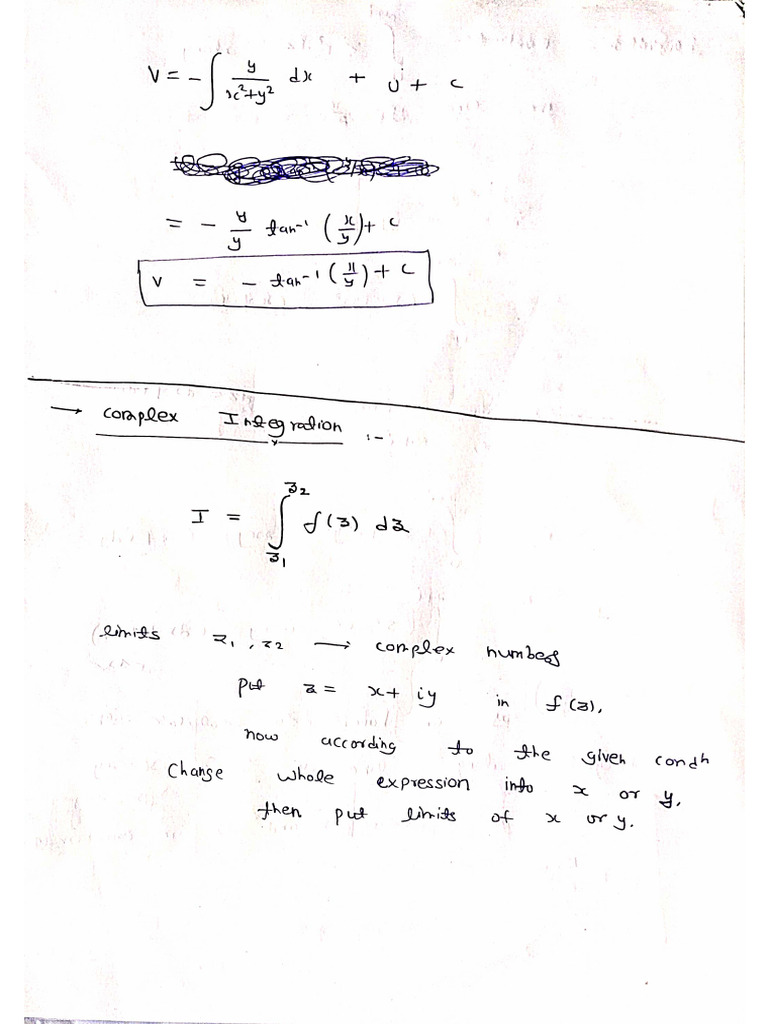 V = - ∫ y/(x²+y²) dx + ü + c
= - y/y tan⁻¹ (x/y) + c
V = - tan⁻¹ (x/y) + c
→ Complex Integration :-
I = ∫_{z1}^{z2} f(z) dz
limits z1, z2 → complex numbers
Put z = x + iy in f(z),
now according to the given condn
Change whole expression into x or y,
then put limits of x or y.